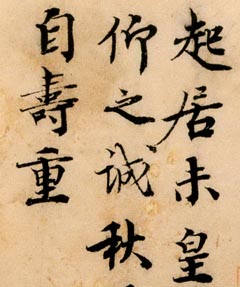 起居未皇
仰之誠秋
自壽重